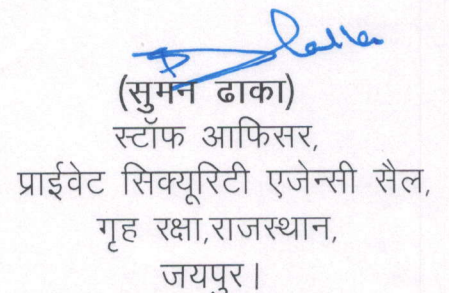 (सुमन ढाका)
स्टॉफ आफिसर,
प्राईवेट सिक्यूरिटी एजेन्सी सैल,
गृह रक्षा,राजस्थान,
जयपुर।